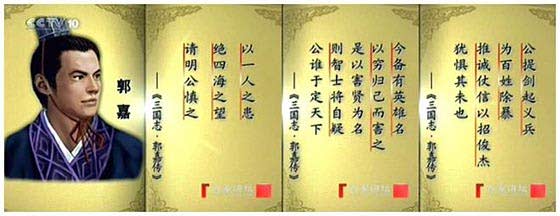 公提剑起义兵
为百姓除暴
推诚仗信以招俊杰
犹惧其未也
——《三国志·郭嘉传》
百家讲坛
今备有英雄名
以穷归己而害之
是以害贤为名
则智士将自疑
公谁于定天下
——《三国志·郭嘉传》
百家讲坛
以一人之患
绝四海之望
请明公慎之
——《三国志·郭嘉传》
百家讲坛
CCTV 10
郭嘉